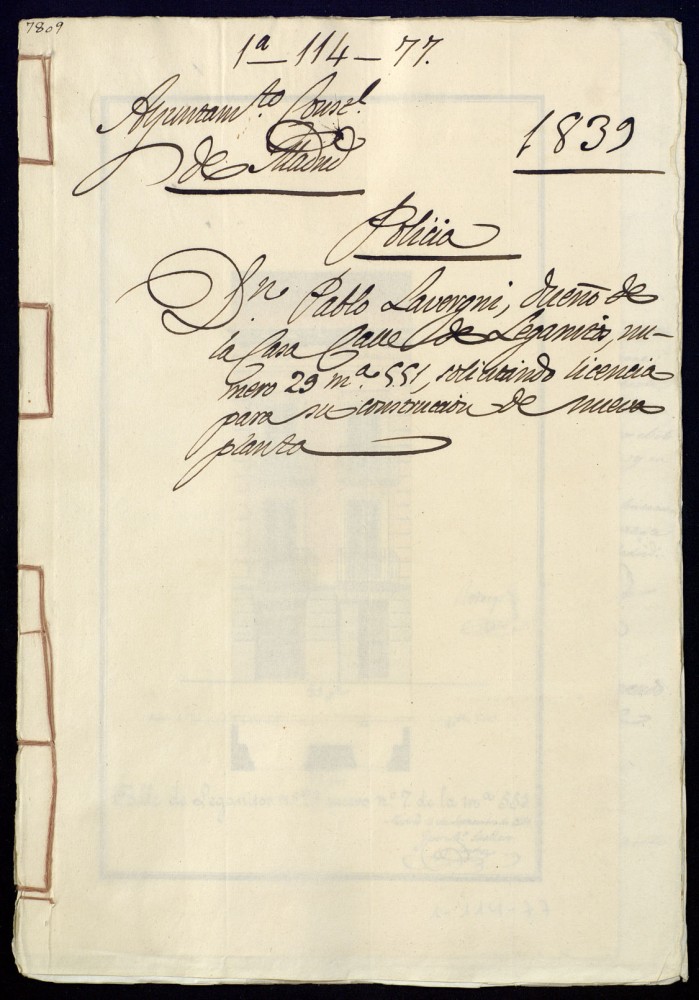 7809
1ª - 114 - 77.
Ayuntam.to Const.l
de Madrid
1839
Policia
D.n Pablo Lavergni, dueño de
la Casa Calle de Leganitos, nu-
mero 29 m.ª 551, solicitando licencia
para su construccion de nueva
planta